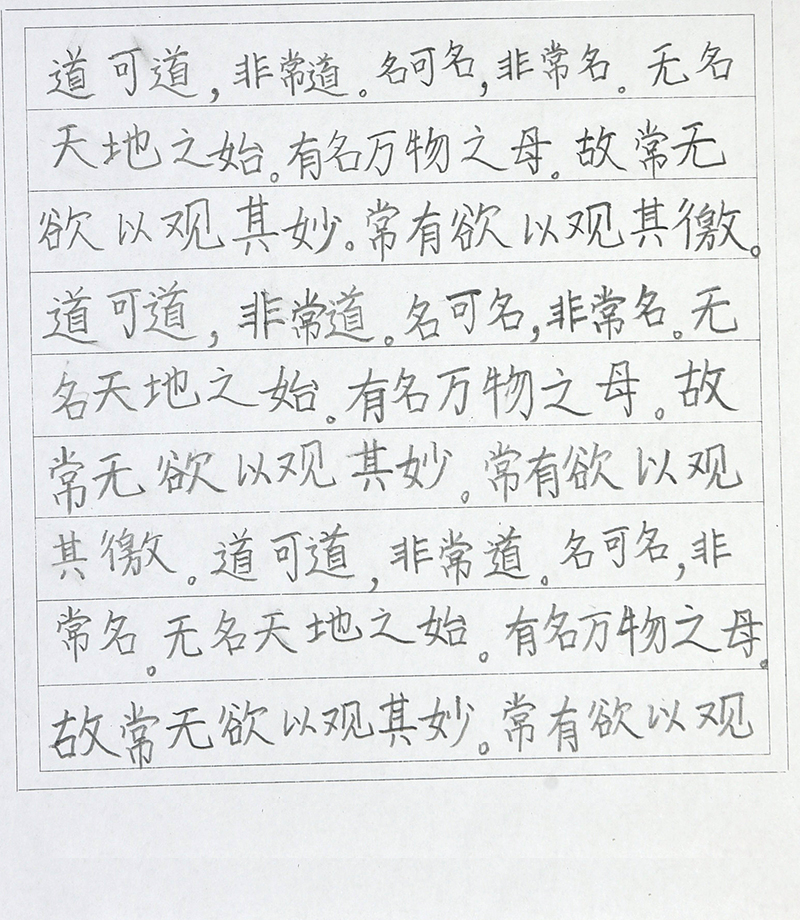 道可道，非常道。名可名，非常名。无名
天地之始。有名万物之母。故常无
欲以观其妙。常有欲以观其徼。
道可道，非常道。名可名，非常名。无
名天地之始。有名万物之母。故
常无欲以观其妙。常有欲以观
其徼。道可道，非常道。名可名，非
常名。无名天地之始。有名万物之母。
故常无欲以观其妙。常有欲以观